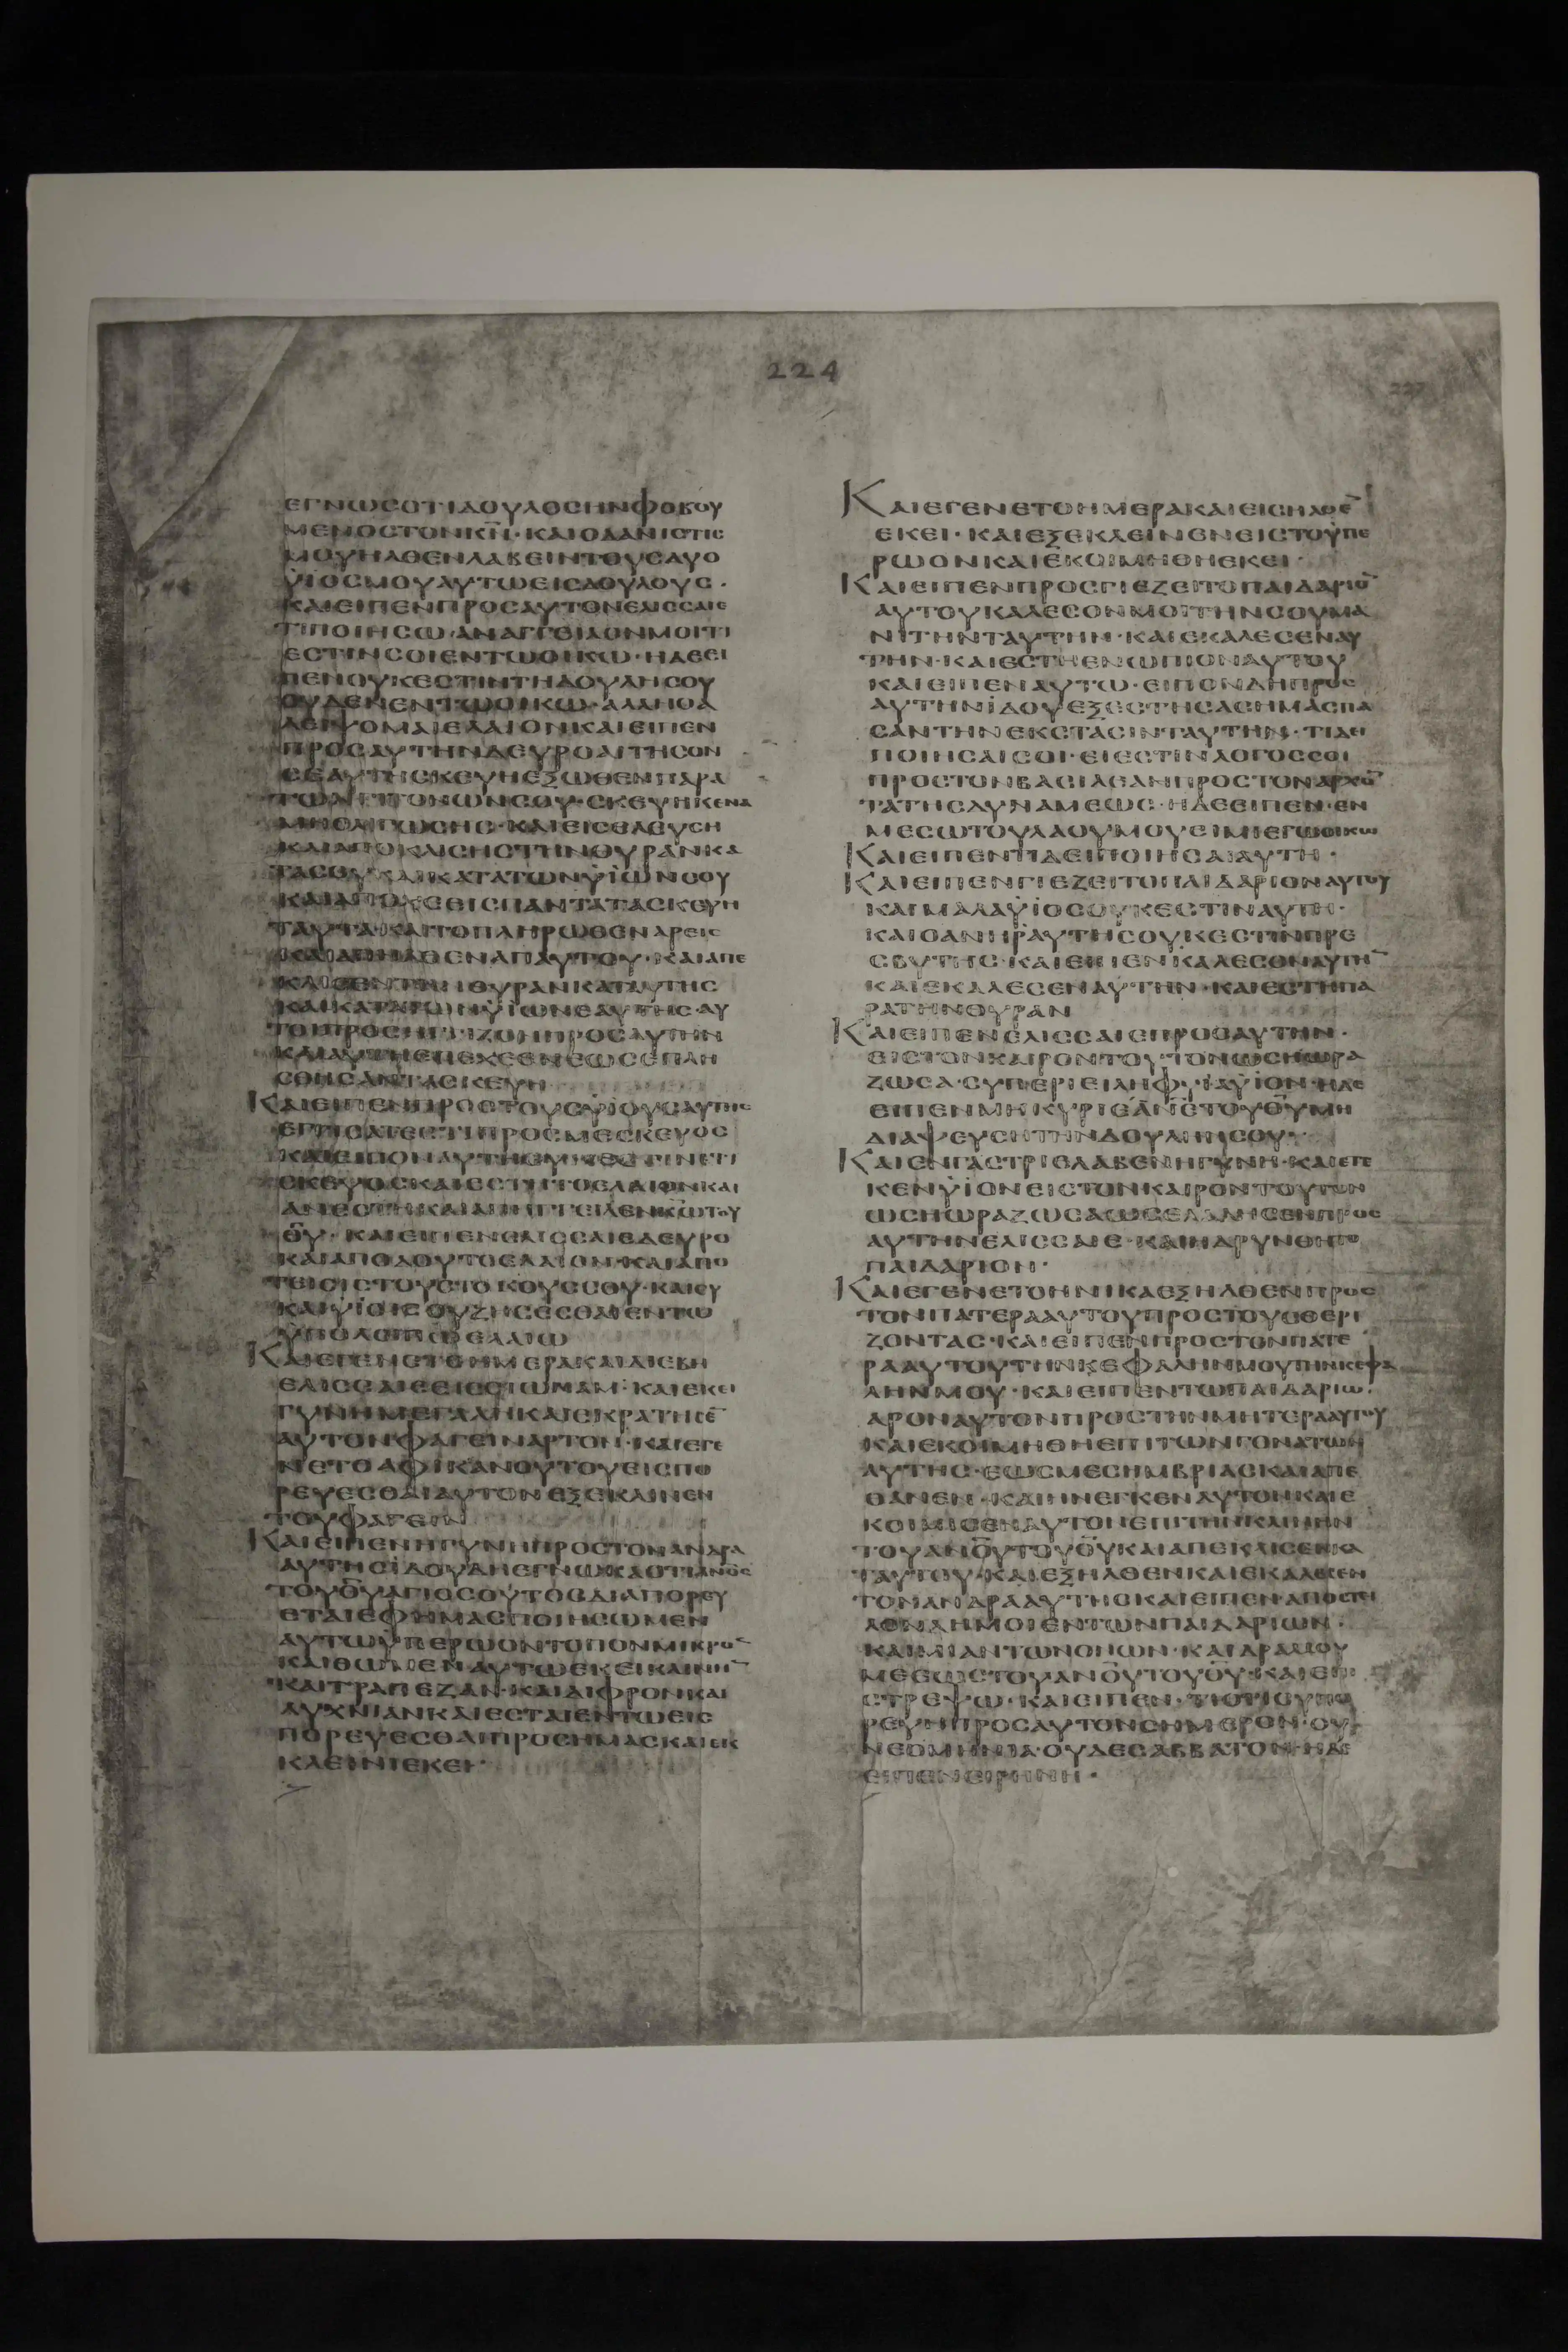 224
ΕΓΝΩСΟΤΙΔΟΥΛΟСΗΝΦΟΒΟΥ
ΜΕΝΟСΤΟΝΚΝ·ΚΑΙΟΔΑΝΙСΤΗС
ΜΟΥΗΛΘΕΝΛΑΒΕΙΝΤΟΥСΔΥΟ
ΥΙΟСΜΟΥΑΥΤΩΕΙСΔΟΥΛΟΥС·
ΚΑΙΕΙΠΕΝΠΡΟСΑΥΤΟΝΕΛΙССΑΙΕ
ΤΙΠΟΙΗСΩ·ΑΝΑΓΓΕΙΛΟΝΜΟΙΤΙ
ΕСΤΙΝСΟΙΕΝΤΩΟΙΚΩ·ΗΔΕΕΙ
ΠΕΝΟΥΚΕСΤΙΝΤΗΔΟΥΛΗСΟΥ
ΟΥΔΕΝΕΝΤΩΟΙΚΩ·ΑΛΛΗΟΑ
ΛΕΙΨΟΜΑΙΕΛΑΙΟΝΚΑΙΕΙΠΕΝ
ΠΡΟСΑΥΤΗΝΔΕΥΡΟΑΙΤΗСΟΝ
СΕΑΥΤΗСΚΕΥΗΕΞΩΘΕΝΠΑΡΑ
ΤΩΝΓΙΤΟΝΩΝСΟΥ·СΚΕΥΗΚΕΝΑ
ΜΗΟΛΙΓΩСΗС·ΚΑΙΕΙСΕΛΕΥСΗ
ΚΑΙΑΠΟΚΛΙСΗСΤΗΝΘΥΡΑΝΚΑ
ΤΑСΟΥΚΑΙΚΑΤΑΤΩΝΥΙΩΝСΟΥ
ΚΑΙΑΠΟΧΕΕΙСΠΑΝΤΑΤΑСΚΕΥΗ
ΤΑΥΤΑΚΑΙΤΟΠΛΗΡΩΘΕΝΑΡΕΙС
ΚΑΙΑΠΗΛΘΕΝΑΠΑΥΤΟΥ·ΚΑΙΑΠΕ
ΚΛΙСΕΝΤΗΝΘΥΡΑΝΚΑΤΑΥΤΗС
ΚΑΙΚΑΤΑΤΩΝΥΙΩΝΕΑΥΤΗС·ΑΥ
ΤΟΙΠΡΟСΗΓΓΙΖΟΝΠΡΟСΑΥΤΗΝ
ΚΑΙΑΥΤΗΕΠΕΧΕΕΝΕΩСΕΠΛΗ
СΘΗСΑΝΤΑСΚΕΥΗ
ΚΑΙΕΙΠΕΝΠΡΟСΤΟΥСΥΙΟΥСΑΥΤΗС
ΕΓΓΙСΑΤΕΕΤΙΠΡΟСΜΕСΚΕΥΟС
ΚΑΙΕΙΠΟΝΑΥΤΗΟΥΚΕСΤΙΝΕΤΙ
СΚΕΥΟСΚΑΙΕСΤΗΤΟΕΛΑΙΟΝΚΑΙ
ΘΥ·ΚΑΙΕΙΠΕΝΕΛΙССΑΙΕΔΕΥΡΟ
ΚΑΙΑΠΟΔΟΥΤΟΕΛΑΙΟΝ·ΚΑΙΑΠΟ
ΤΕΙСΙСΤΟΥСΤΟΚΟΥССΟΥ·ΚΑΙСΥ
ΚΑΙΥΙΟΙСΟΥΖΗСΕСΘΑΙΕΝΤΩ
ΥΠΟΛΟΙΠΩΕΛΑΙΩ
ΚΑΙΕΓΕΝΕΤΟΗΜΕΡΑΚΑΙΔΙΕΒΗ
ΕΛΙССΑΙΕΕΙССΙΩΜΑΜ·ΚΑΙΕΚΕΙ
ΓΥΝΗΜΕΓΑΛΗΚΑΙΕΚΡΑΤΗСΕ
ΑΥΤΟΝΦΑΓΕΙΝΑΡΤΟΝ·ΚΑΙΕΓΕ
ΝΕΤΟΑΦΙΚΑΝΟΥΤΟΥΕΙСΠΟ
ΡΕΥΕСΘΑΙΑΥΤΟΝΕΞΕΚΛΙΝΕΝ
ΤΟΥΦΑΓΕΙΝ
ΚΑΙΕΙΠΕΝΗΓΥΝΗΠΡΟСΤΟΝΑΝΔΡΑ
ΑΥΤΗСΙΔΟΥΔΗΕΓΝΩΚΑΟΤΙΑΝΟС
ΤΟΥΘΥΑΓΙΟСΟΥΤΟСΔΙΑΠΟΡΕΥ
ΕΤΑΙΕΦΗΜΑСΠΟΙΗСΩΜΕΝ
ΑΥΤΩΥΠΕΡΩΟΝΤΟΠΟΝΜΙΚΡΟ
ΚΑΙΘΩΜΕΝΑΥΤΩΕΚΕΙΚΛΙΝΗ
ΚΑΙΤΡΑΠΕΖΑΝ·ΚΑΙΔΙΦΡΟΝΚΑΙ
ΛΥΧΝΙΑΝΚΑΙΕСΤΑΙΕΝΤΩΕΙС
ΠΟΡΕΥΕСΘΑΙΠΡΟСΗΜΑСΚΑΙΕΚ
ΚΛΕΙΝΙΕΚΕΙ·
ΚΑΙΕΓΕΝΕΤΟΗΜΕΡΑΚΑΙΕΙСΗΛΘΕ
ΕΚΕΙ·ΚΑΙΕΞΕΚΛΕΙΝΕΝΕΙСΤΟΥΠΕ
ΡΩΟΝΚΑΙΕΚΟΙΜΗΘΗΕΚΕΙ·
ΚΑΙΕΙΠΕΝΠΡΟСΓΙΕΖΕΙΤΟΠΑΙΔΑΡΙΟ
ΑΥΤΟΥΚΑΛΕСΟΝΜΟΙΤΗΝСΟΥΜΑ
ΝΙΤΗΝΤΑΥΤΗΝ·ΚΑΙΕΚΑΛΕСΕΝΑΥ
ΤΗΝ·ΚΑΙΕСΤΗΕΝΩΠΙΟΝΑΥΤΟΥ
ΚΑΙΕΙΠΕΝΑΥΤΩ·ΕΙΠΟΝΔΗΠΡΟС
ΑΥΤΗΝΙΔΟΥΕΞΕСΤΗСΑСΗΜΑСΠΑ
СΑΝΤΗΝΕΚСΤΑСΙΝΤΑΥΤΗΝ·ΤΙΔΕΙ
ΠΟΙΗСΑΙСΟΙ·ΕΙΕСΤΙΝΛΟΓΟССΟΙ
ΠΡΟСΤΟΝΒΑСΙΛΕΑΝΠΡΟСΤΟΝΑΡΧΟ
ΤΑΤΗСΔΥΝΑΜΕΩС·ΗΔΕΕΙΠΕΝ·ΕΝ
ΜΕСΩΤΟΥΛΑΟΥΜΟΥΕΙΜΙΕΓΩΟΙΚΩ
ΚΑΙΕΙΠΕΝΤΙΔΕΙΠΟΙΗСΑΙΑΥΤΗ·
ΚΑΙΕΙΠΕΝΓΙΕΖΕΙΤΟΠΑΙΔΑΡΙΟΝΑΥΤΟΥ
ΚΑΙΜΑΛΑΥΙΟСΟΥΚΕСΤΙΝΑΥΤΗ·
ΚΑΙΟΑΝΗΡΑΥΤΗСΟΥΚΕСΤΙΝΠΡΕ
СΒΥΤΗС·ΚΑΙΕΙΠΕΝΚΑΛΕСΟΝΑΥΤΗ
ΚΑΙΕΚΑΛΕСΕΝΑΥΤΗΝ·ΚΑΙΕСΤΗΠΑ
ΡΑΤΗΝΘΥΡΑΝ
ΚΑΙΕΙΠΕΝΕΛΙССΑΙΕΠΡΟСΑΥΤΗΝ·
ΕΙСΤΟΝΚΑΙΡΟΝΤΟΥΤΟΝΩСΗΩΡΑ
ΖΩСΑ·СΥΠΕΡΙΕΙΛΗΦΥΙΑΥΙΟΝ·ΗΔΕ
ΕΙΠΕΝΜΗΚΥΡΙΕΑΝΕΤΟΥΘΥΜΗ
ΔΙΑΨΕΥСΗΤΗΝΔΟΥΛΗΝСΟΥ·
ΚΑΙΕΝΓΑСΤΡΙΕΛΑΒΕΝΗΓΥΝΗ·ΚΑΙΕΤΕ
ΚΕΝΥΙΟΝΕΙСΤΟΝΚΑΙΡΟΝΤΟΥΤΟΝ
ΩСΗΩΡΑΖΩСΑΩСΕΛΑΛΗСΕΝΠΡΟС
ΑΥΤΗΝΕΛΙССΑΙΕ·ΚΑΙΗΔΡΥΝΘΗΤΟ
ΠΑΙΔΑΡΙΟΝ·
ΚΑΙΕΓΕΝΕΤΟΗΝΙΚΑΕΞΗΛΘΕΝΠΡΟС
ΤΟΝΠΑΤΕΡΑΑΥΤΟΥΠΡΟСΤΟΥСΘΕΡΙ
ΖΟΝΤΑС·ΚΑΙΕΙΠΕΝΠΡΟСΤΟΝΠΑΤΕ
ΡΑΑΥΤΟΥΤΗΝΚΕΦΑΛΗΝΜΟΥΤΗΝΚΕΦΑ
ΛΗΝΜΟΥ·ΚΑΙΕΙΠΕΝΤΩΠΑΙΔΑΡΙΩ·
ΑΡΟΝΑΥΤΟΝΠΡΟСΤΗΝΜΗΤΕΡΑΑΥΤΟΥ
ΚΑΙΕΚΟΙΜΗΘΗΕΠΙΤΩΝΓΟΝΑΤΩΝ
ΑΥΤΗС·ΕΩСΜΕСΗΜΒΡΙΑСΚΑΙΑΠΕ
ΘΑΝΕΝ·ΚΑΙΗΝΕΓΚΕΝΑΥΤΟΝΚΑΙΕ
ΚΟΙΜΙСΕΝΑΥΤΟΝΕΠΙΤΗΝΚΛΙΝΗΝ
ΤΟΥΑΝΟΥΤΟΥΘΥΚΑΙΑΠΕΚΛΙСΕΝΚΑ
ΤΑΥΤΟΥ·ΚΑΙΕΞΗΛΘΕΝΚΑΙΕΚΑΛΕСΕΝ
ΤΟΝΑΝΔΡΑΑΥΤΗСΚΑΙΕΙΠΕΝΑΠΟСΤΕΙ
ΛΟΝΔΗΜΟΙΕΝΤΩΝΠΑΙΔΑΡΙΩΝ·
ΚΑΙΜΙΑΝΤΩΝΟΝΩΝ·ΚΑΙΔΡΑΜΟΥ
ΜΕΕΩСΤΟΥΑΝΟΥΤΟΥΘΥ·ΚΑΙΕΠΙ
СΤΡΕΨΩ·ΚΑΙΕΙΠΕΝ·ΤΙΟΤΙСΥΠΟ
ΡΕΥΗΠΡΟСΑΥΤΟΝСΗΜΕΡΟΝ·ΟΥ
ΝΕΟΜΗΝΙΑ·ΟΥΔΕСΑΒΒΑΤΟΝ·ΗΔΕ
ΕΙΠΕΝΕΙΡΗΝΗ·